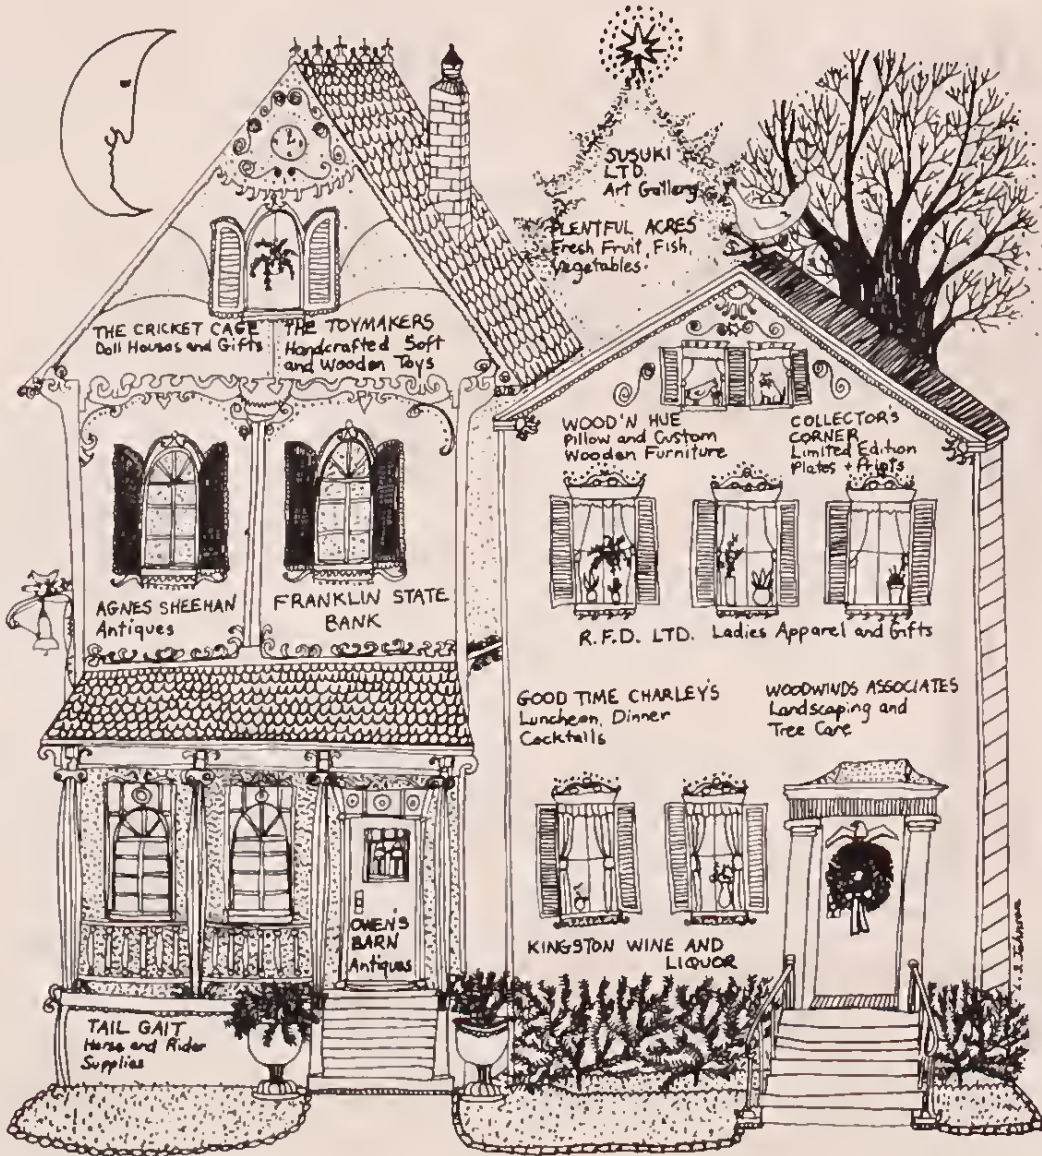 SUSUKI
LTD.
Art Gallery
PLENTFUL ACRES
Fresh Fruit, Fish,
Vegetables.
THE CRICKET CAGE
Doll Houses and Gifts
THE TOYMAKERS
Handcrafted Soft
and Wooden Toys
WOOD'N HUE
Pillow and Custom
Wooden Furniture
COLLECTOR'S
CORNER
Limited Edition
Plates + Prints
AGNES SHEEHAN
Antiques
FRANKLIN STATE
BANK
R.F.D. LTD. Ladies Apparel and Gifts
GOOD TIME CHARLEY'S
Luncheon, Dinner
Cocktails
WOODWINDS ASSOCIATES
Landscaping and
Tree Care
OWEN'S
BARN
Antiques
KINGSTON WINE AND
LIQUOR
TAIL GAIT
Horse and Rider
Supplies